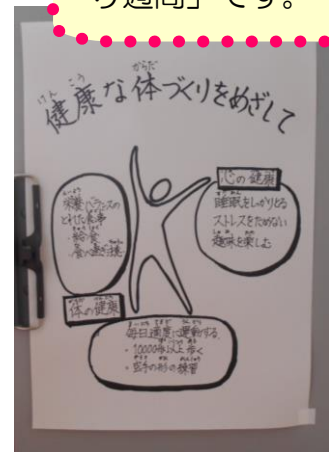 り週間」です。
健康な体づくりをめざして
けんこう
からだ
心の健康
睡眠をしっかりとる
ストレスをためない
趣味を楽しむ
栄養バランスの
とれた食事
・給食
体の健康
毎日適度に運動する
・10000歩以上歩く
・空手の形の練習